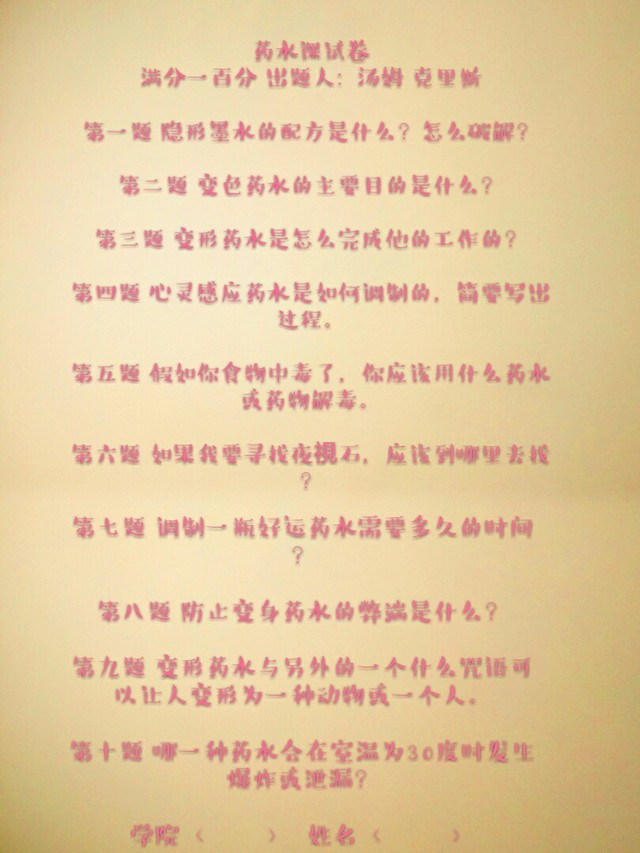 药水课试卷
满分一百分 出题人：汤姆 克里斯
第一题 隐形墨水的配方是什么？怎么破解？
第二题 变色药水的主要目的是什么？
第三题 变形药水是怎么完成他的工作的？
第四题 心灵感应药水是如何调制的，简要写出
过程。
第五题 假如你食物中毒了，你应该用什么药水
或药物解毒。
第六题 如果我要寻找夜視石，应该到哪里去找
？
第七题 调制一瓶好运药水需要多久的时间
？
第八题 防止变身药水的弊端是什么？
第九题 变形药水与另外的一个什么咒语可
以让人变形为一种动物或一个人。
第十题 哪一种药水会在室温为30度时发生
爆炸或泄漏？
学院（ ） 姓名（ ）